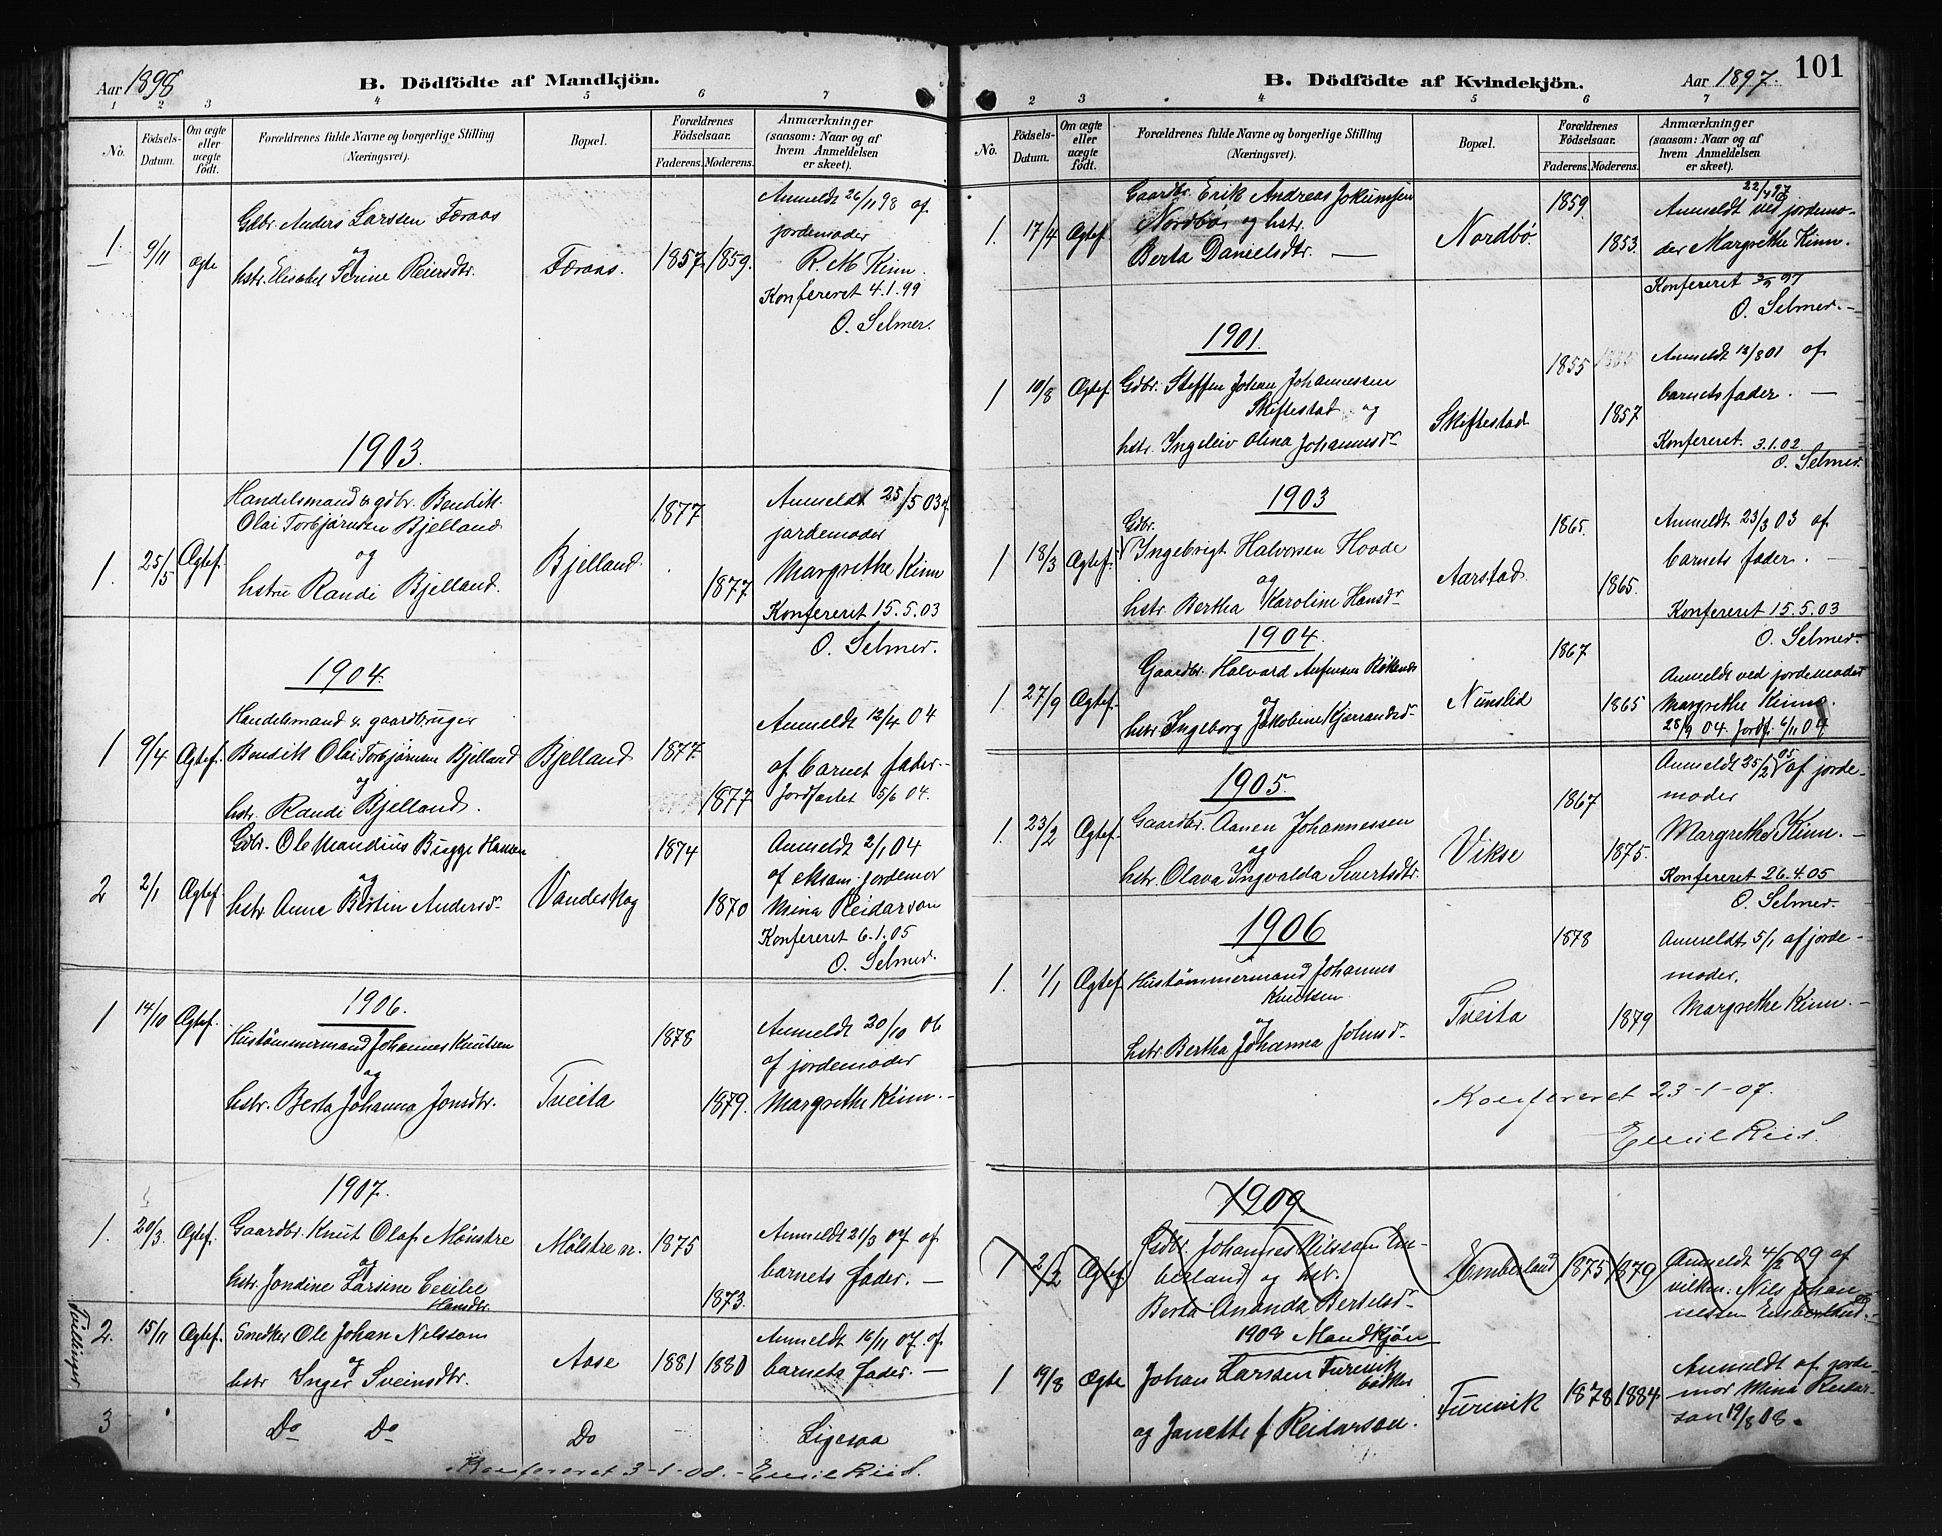 Aar 1898
B. Dödfödte af Mandkjön.
1 2 3 4 5 6 7
No.
Födsels-Datum.
Om ægte eller uægte födt.
Forældrenes fulde Navne og borgerlige Stilling
(Næringsvei).
Bopæl.
Forældrenes Födselsaar.
Faderens. Moderens.
Anmærkninger
(saasom: Naar og af
hvem Anmeldelsen
er skeet).
1. 9/11 ægte
Gdbr. Anders Larssen Færaas
og
hstr. Elisabet Serine Reiersdtr.
Færaas. 1857. 1859.
Anmeldt 26/11 98 af
jordemoder
R. M. Kinn.
Konfereret 4.1.99
O. Selmer.
1903.
1. 25/5 Ægtef.
Handelsmand & gdbr. Bendik
Olai Torbjørnsen Bjelland
og
hstru Randi Bjelland.
Bjelland 1877 1877
Anmeldt 25/5 03 af
jordemoder
Margrethe Kinn
Konfereret 15.5.03
O. Selmer.
1904.
1 9/4 Ægtef.
Handelsmand & gaardbruger
Bendik Olai Torbjørnsen Bjelland
og
hstr. Randi Bjelland.
Bjelland 1877. 1877
Anmeldt 12/4 04
af barnet fader.
Jordfæstet 5/6 04.
2 2/1 Ægtef.
Gdbr. Ole Mandius Bugge Hansen
og
hstr. Anna Bertin Andersdr
Vandeskog 1874 1870
Anmeldt 2/1 04
af eksam. jordemor
Mina Reidarson
Konfereret 6.1.05
O. Selmer.
1906.
1 14/10 Ægtef.
Hustømmermand Johannes Knutsen
og
hstr. Berta Johanna Jonsdtr.
Tveita 1878 1879.
Anmeldt 20/10 06
af jordemoder
Margrethe Kinn.
1907.
1. 20/3. Ægtef.
Gaardbr. Knut Olaf Mølstre
og
hstr. Jondine Larsine Cecilie
Hansdtr.
Mølstre n. 1875 1873.
Anmeldt 21/3 07 af
barnets fader.
Tvillinger
2. 15/11 Ægtef.
Snedker Ole Johan Nelsson
og
hstr Inger Sveinsdtr.
Aase 1881 1880
Anmeldt 16/11 07. af
barnets fader.
3 Do Do Do Ligesaa
Konfereret 3-1-08. - Emil Riis.
B. Dödfödte af Kvindekjön.
Aar 1897.
101
2 3 4 5 6 7
No.
Födsels-Datum.
Om ægte eller uægte födt.
Forældrenes fulde Navne og borgerlige Stilling
(Næringsvei).
Bopæl.
Forældrenes Födselsaar.
Faderens. Moderens.
Anmærkninger
(saasom: Naar og af
hvem Anmeldelsen
er skeet).
1. 17/4 Ægtef.
Gaardbr. Erik Andreas Jokumsen
Nordbø og hstr.
Berta Danielsdtr.
Nordbø. 1859. 1853.
22/4 97
Anmeldt ved jordemo-
der Margrethe Kinn.
Konfereret 3/5 97
O. Selmer.
1901.
1 10/8 Ægtef.
Gdbr. Steffen Johan Johannessen
Skiftestad og
hstr. Ingeleiv Olina Johannesdr
Skiftestad 1855 1857
Anmeldt 12/8 01 af
barnets fader.
Konfereret 3.1.02
O. Selmer.
1903
1 18/3 Ægtef.
Gdbr.
Ingebrigt Halvorsen Hovde
og
hstr. Bertha Karoline Hansdr
Aarstad. 1865. 1865.
Anmeldt 23/3 03 af
barnets fader.
Konfereret 15.5.03
O. Selmer.
1904.
1 27/9 Ægtef.
Gaardbr. Halvard Aufensen
og
hstr. Ingeborg Jakobine Kjerrandsdr
Nunslid 1867 1865
Anmeldt ved jordemoder
Margrethe Kinn.
28/9 04. Jordf. 6/11 04
1905.
1. 23/2 Ægtef.
Gaardbr. Aanen Johannessen
og
hstr. Olava Ingvalda Sivertsdtr.
Vikse 1867 1875.
Anmeldt 25/2 05 af jorde-
moder
Margrethe Kinn.
Konfereret 26.4.05
O. Selmer.
1906
1. 1/1 Ægtef.
Hustømmermand Johannes
Knutsen
og
hstr. Bertha Johanna Johnsdr
Tveita 1878 1879
Anmeldt 5/1 af jorde-
moder.
Margrethe Kinn.
Konfereret 23-1-07.
Emil Riis.
1909
1 2/2 Ægtef
Gdbr. Johannes Nilsson Em-
berland og hst.
Berta Ananda Bertelsdr
Emberland 1875 1879
Anmeldt 4/2 09 af
vilkm. Nils Johan-
nessen Emberland.
1908 Mandkjön
1 19/8 Ægte
Johan Larssen Furevik
bødker
og Janette f. Reidarson.
Furevik 1878 1884.
Anmeldt af jorde-
mor Mina Reidar-
son 19/8 08.